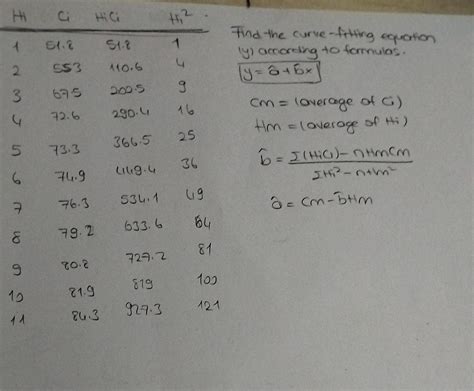 Hi Ci HiCi Hi²
1 51.8 51.8 1
2 553 110.6 4
3 675 202.5 9
4 72.6 290.4 16
5 73.3 366.5 25
6 74.9 449.4 36
7 76.3 534.1 49
8 79.2 633.6 64
9 80.8 727.2 81
10 81.9 819 100
11 84.3 927.3 121
Find the curve-fitting equation
(y) according to formulas.
y = â + b̂x
Cm = (average of Ci)
Hm = (average of Hi)
b̂ = Σ(HiCi) - nHmCm / ΣHi² - nHm²
â = Cm - b̂Hm